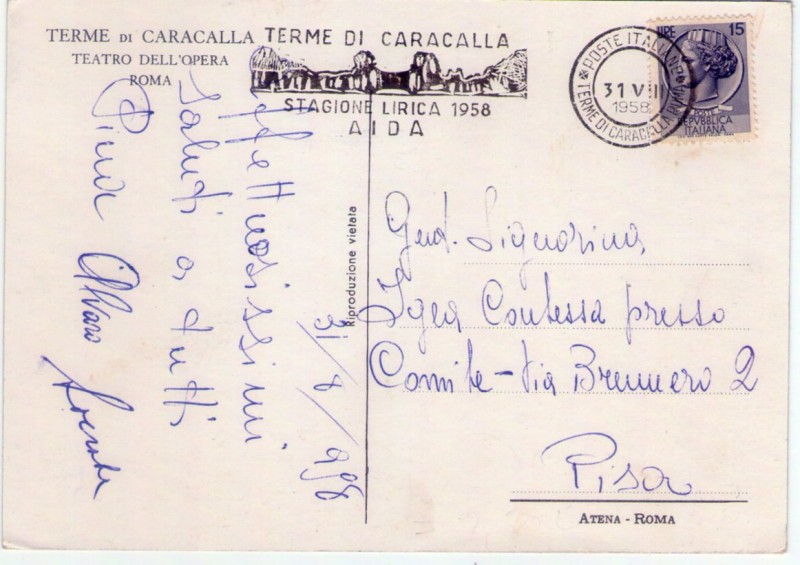 TERME DI CARACALLA
TEATRO DELL'OPERA
ROMA
TERME DI CARACALLA
STAGIONE LIRICA 1958
AIDA
POSTE ITALIANE
31 VIII
1958
TERME DI CARACALLA
LIRE 15
POSTE
REPVBBLICA
ITALIANA
31/8/958
Affettuosissimi
saluti a tutti
Pina Alvaro
Riproduzione vietata
Gent. Signorina
Igea Contessa presso
Comite - Via Brennero 2
Pisa
ATENA - ROMA